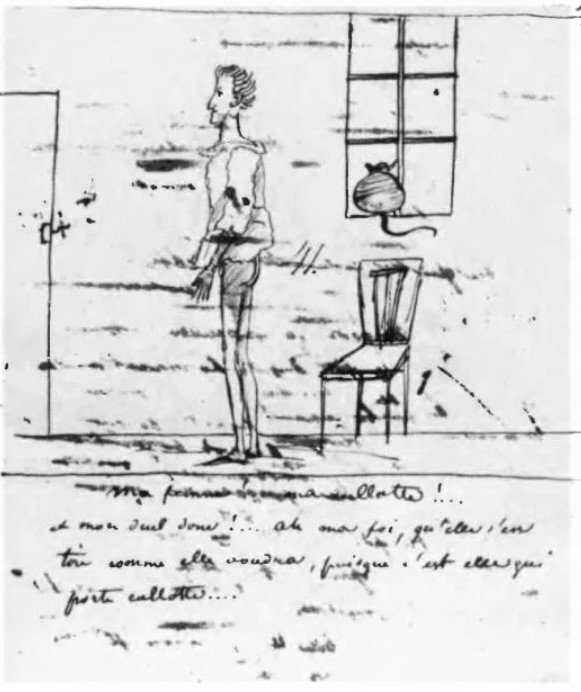 ma femme ma cullotte !...
et mon duel donc !.... ah ma foi, qu'elle s'en
tire comme elle voudra, puisque c'est elle qui
porte cullotte....